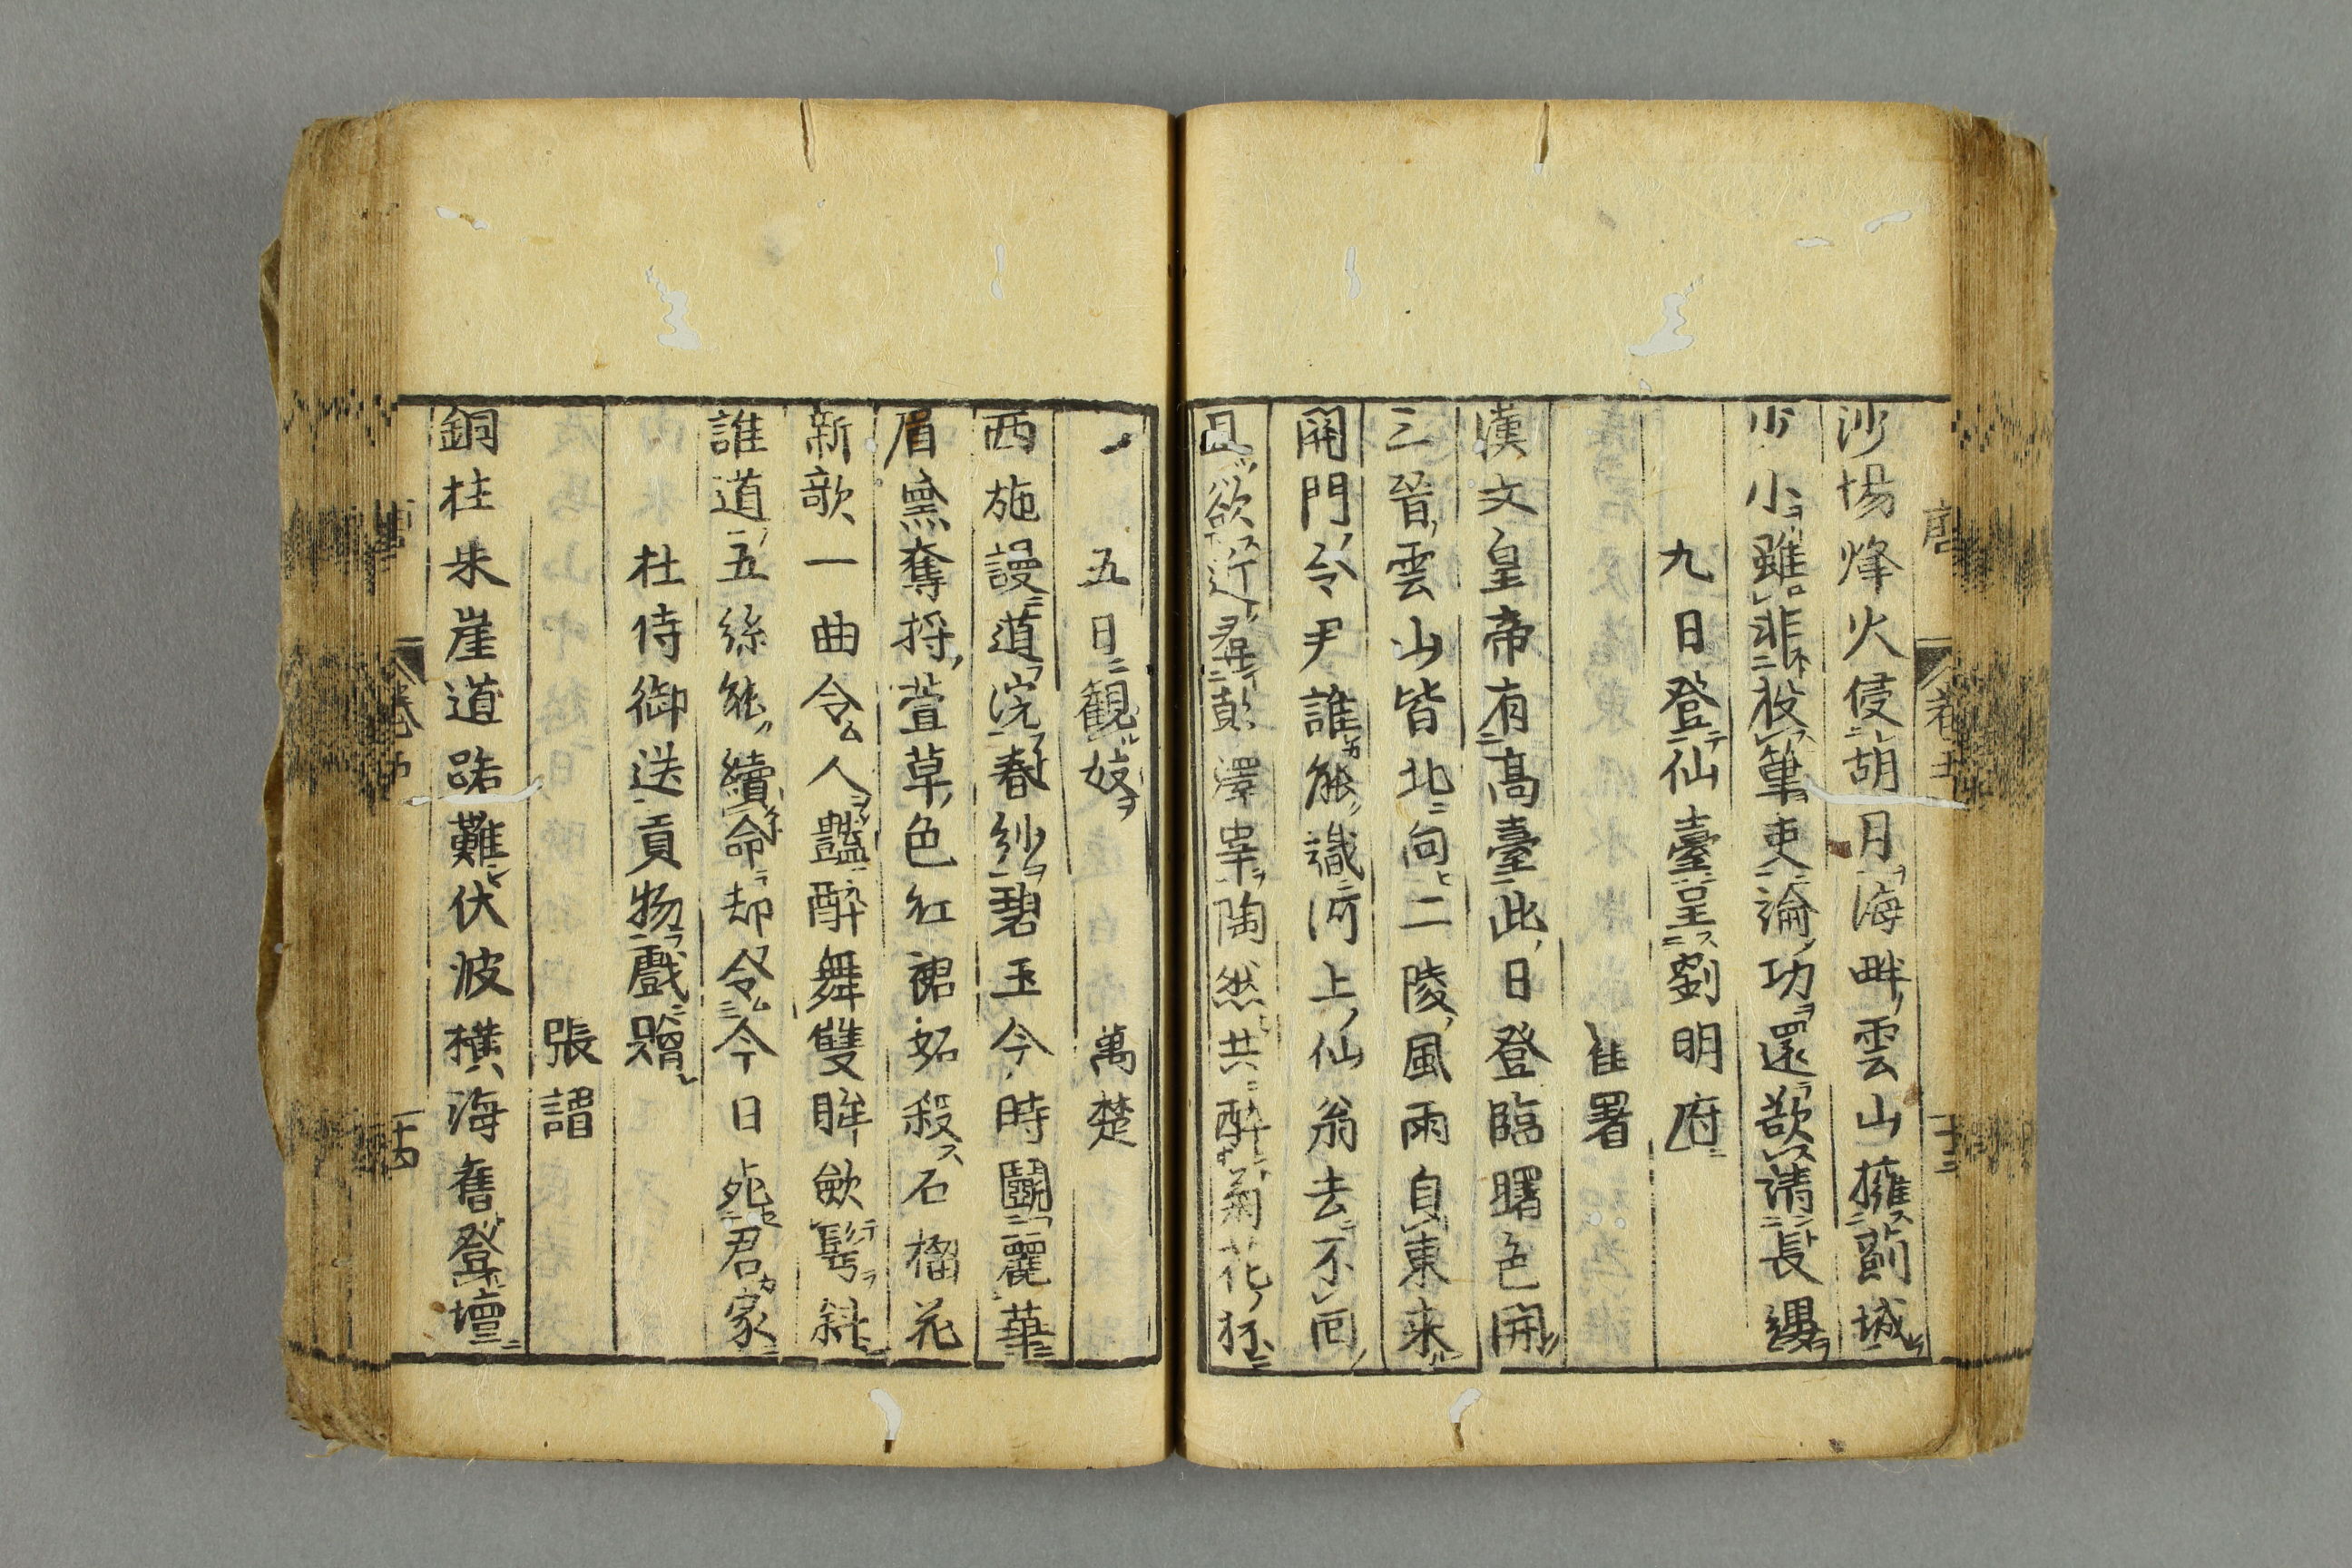 沙場烽火侵胡月海畔雲山擁薊城
少小雖非投筆吏論功還欲請長纓
九日登仙臺呈劉明府
崔署
漢文皇帝有高臺此日登臨曙色開
三晉雲山皆北向二陵風雨自東来
関門令尹誰能識河上仙翁去不回
且欲近尋彭澤宰陶然共醉菊花杯
五日觀妓
萬楚
西施謾道浣春紗碧玉今時鬪麗華
眉黛奪将萱草色紅裙妬殺石榴花
新歌一曲令人豔醉舞雙眸斂鬢斜
誰道五絲能續命却令今日死君家
杜侍御送貢物戲贈
張謂
銅柱朱崖道路難伏波横海舊登壇